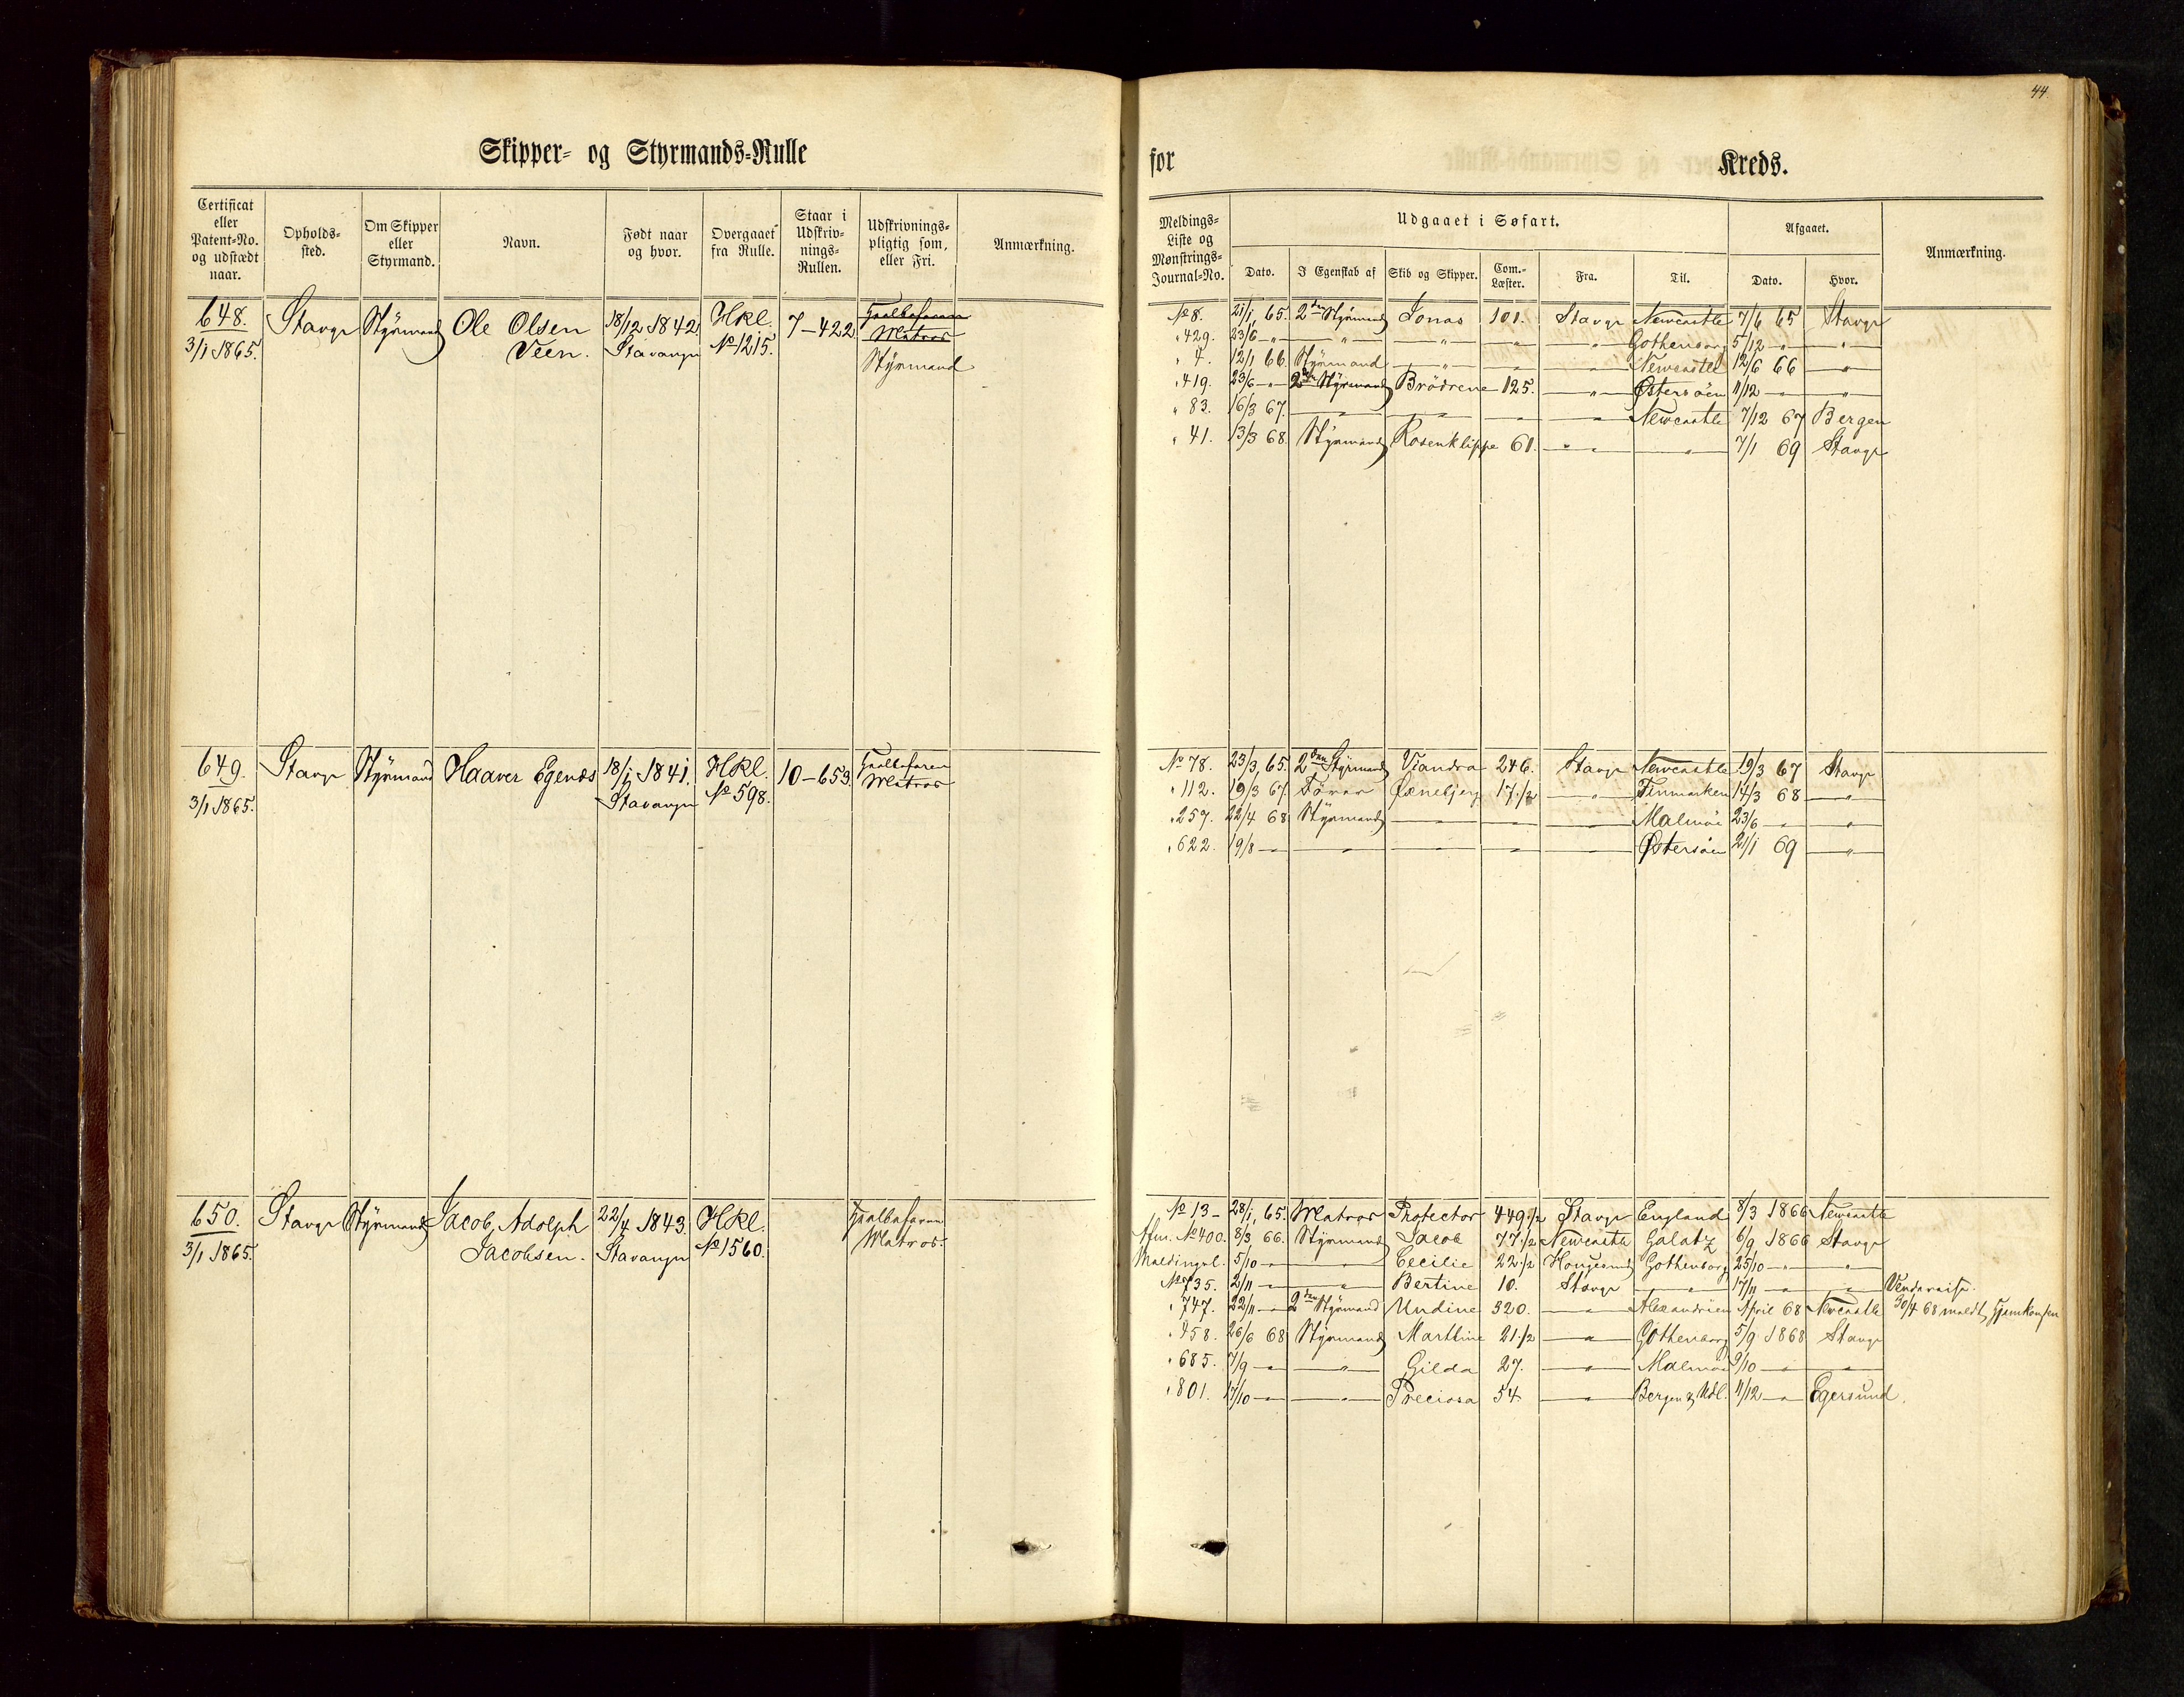 44.
Skipper- og Styrmands-Rulle for Kreds.
Certificat eller Patent-No. og udstædt naar.
Opholds-sted.
Om Skipper eller Styrmand.
Navn.
Født naar og hvor.
Overgaaet fra Rulle.
Staar i Udskriv-nings-Rullen.
Udskrivnings-pligtig som, eller Fri.
Anmærkning.
Meldings-Liste og Mønstrings-Journal-No.
Udgaaet i Søfart.
Dato. I Egenskab af Skib og Skipper. Com.-Læster. Fra. Til.
Afgaaet.
Dato. Hvor.
Anmærkning.
648. Stavgr Styrmand Ole Olsen 18/12 1842 Hkl. 7-422 Fuldbefaren
3/1 1865. Veen. Stavanger No 1215. Matros
Styrmand
No 8. 21/1 65. 2den Styrmand Jonas 101. Stavgr Newcastle 7/6 65 Stavgr
" 429. 23/6 - " - " - " - " - " Gothenborg 5/12 - " "
" 4. 12/1 66 Styrmand - " - " - " Newcastle 12/6 66 "
" 419. 23/6 - " 2den Styrmand Brødrene 125. - " Østersøen 11/12 - " "
" 83. 16/3 67. - " - " - " - " Newcastle 7/12 67 Bergen
" 41. 13/3 68. Styrmand Rosenklippe 61. - " - " 7/1 69 Stavgr
649. Stavgr Styrmand Haaver Egenæs 18/1 1841. Hkl. 10-653. Fuldbefaren
3/1 1865. Stavanger No 598. Matros
No 78. 23/3 65. 2den Styrmand Viandra 246. Stavgr Newcastle 19/3 67 Stavgr
" 112. 19/3 67. Fører 17 1/2 - " Finmarken 14/3 68 - "
" 257. 22/4 68 Styrmand - " - " - " Malmøe 23/6 - " "
" 622. 19/8 - " - " - " - " - " Østersøen 21/1 69 - "
650. Stavgr Styrmand Jacob Adolph 22/4 1843. Hkl. Fuldbefaren
3/1 1865. Jacobsen. Stavanger No 1560. Matros.
No 13 - 28/1 65. Matros Protector 449 1/2 Stavgr England 8/3 1866 Newcastle
Afm. No 400. 8/3 66. Styrmand Jacob 77 1/2 Newcastle Galatz 6/9 1866 Stavgr
Meldingsl. 5/10 - " - " Cecilie 22 1/2 Haugesund Gothenborg 25/10 - " "
No 735. 2/11 - " - " Bertine 10. Stavgr - " 17/11 - " - " Venderejse.
" 747. 22/11 - " 2den Styrmand Undine 320. - " Alexandrien April 68 Newcastle 30/4 68 meldt Hjemkomsen
" 458. 26/6 68 Styrmand Marthine 21 1/2 - " Gothenborg 5/9 1868 Stavgr
" 685. 7/9 - " - " Gilda 27. - " Malmøe 9/10 - " - "
" 801. 17/10 - " - " Preciosa 54 - " Bergen & Udl. 11/12 - " Egersund.